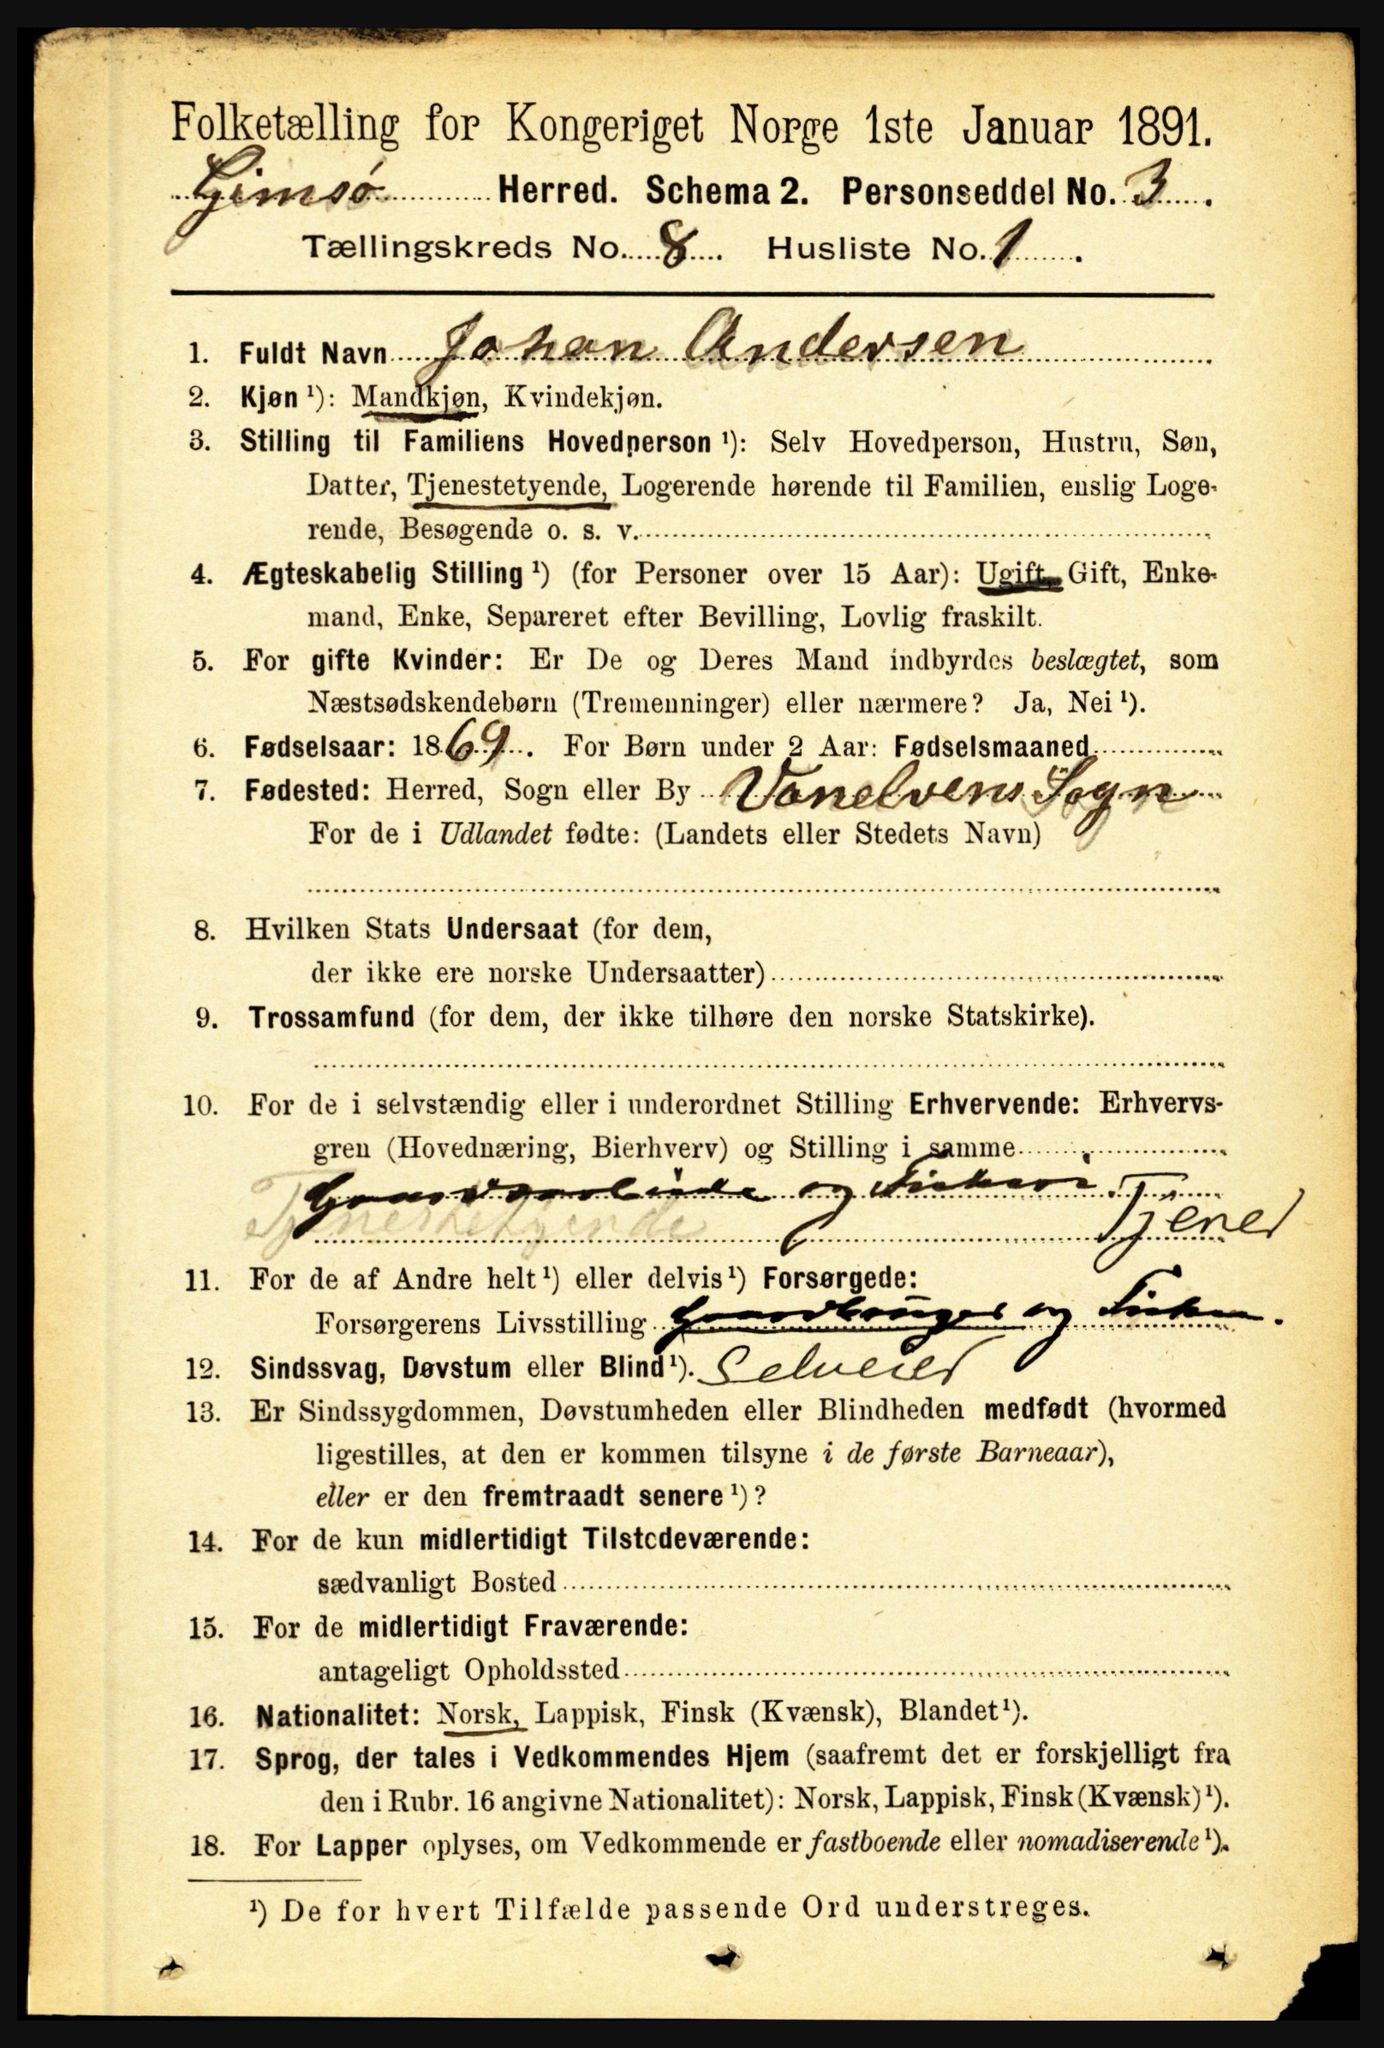 Folketælling for Kongeriget Norge 1ste Januar 1891.
Gimsø Herred. Schema 2. Personseddel No. 3.
Tællingskreds No. 8. Husliste No. 1.
1. Fuldt Navn Johan Andersen
2. Kjøn ¹): Mandkjøn, Kvindekjøn.
3. Stilling til Familiens Hovedperson ¹): Selv Hovedperson, Hustru, Søn,
Datter, Tjenestetyende, Logerende hørende til Familien, enslig Loge-
rende, Besøgende o. s. v.
4. Ægteskabelig Stilling ¹) (for Personer over 15 Aar): Ugift, Gift, Enke-
mand, Enke, Separeret efter Bevilling, Lovlig fraskilt.
5. For gifte Kvinder: Er De og Deres Mand indbyrdes beslægtet, som
Næstsødskendebørn (Tremenninger) eller nærmere? Ja, Nei ¹).
6. Fødselsaar: 1869. For Børn under 2 Aar: Fødselsmaaned
7. Fødested: Herred, Sogn eller By Vanelvens Sogn
For de i Udlandet fødte: (Landets eller Stedets Navn)
8. Hvilken Stats Undersaat (for dem,
der ikke ere norske Undersaatter)
9. Trossamfund (for dem, der ikke tilhøre den norske Statskirke).
10. For de i selvstændig eller i underordnet Stilling Erhvervende: Erhvervs-
gren (Hovednæring, Bierhverv) og Stilling i samme
og Fiskeri.
Tjenestetyende Tjener
11. For de af Andre helt ¹) eller delvis ¹) Forsørgede:
Forsørgerens Livsstilling Gaardbruger og Fisker.
12. Sindssvag, Døvstum eller Blind ¹). Selveier
13. Er Sindssygdommen, Døvstumheden eller Blindheden medfødt (hvormed
ligestilles, at den er kommen tilsyne i de første Barneaar),
eller er den fremtraadt senere ¹)?
14. For de kun midlertidigt Tilstedeværende:
sædvanligt Bosted
15. For de midlertidigt Fraværende:
antageligt Opholdssted
16. Nationalitet: Norsk, Lappisk, Finsk (Kvænsk), Blandet ¹).
17. Sprog, der tales i Vedkommendes Hjem (saafremt det er forskjelligt fra
den i Rubr. 16 angivne Nationalitet): Norsk, Lappisk, Finsk (Kvænsk) ¹).
18. For Lapper oplyses, om Vedkommende er fastboende eller nomadiserende ¹).
¹) De for hvert Tilfælde passende Ord understreges.